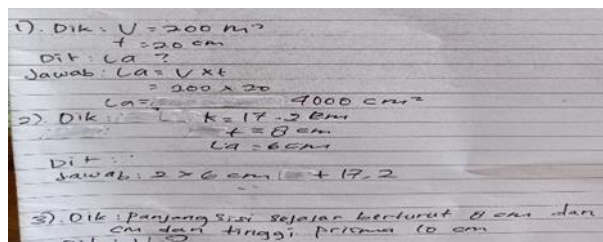 1). Dik : V = 200 m²
t = 20 cm
Dit : La ?
Jawab : La = V x t
= 200 x 20
La = 4000 cm²
2). Dik : k = 17.2 cm
t = 8 cm
La = 6 cm
Dit :
Jawab : 2 x 6 cm + 17,2
3). Dik : panjang sisi sejajar berturut 8 cm dan
cm dan tinggi prisma 10 cm